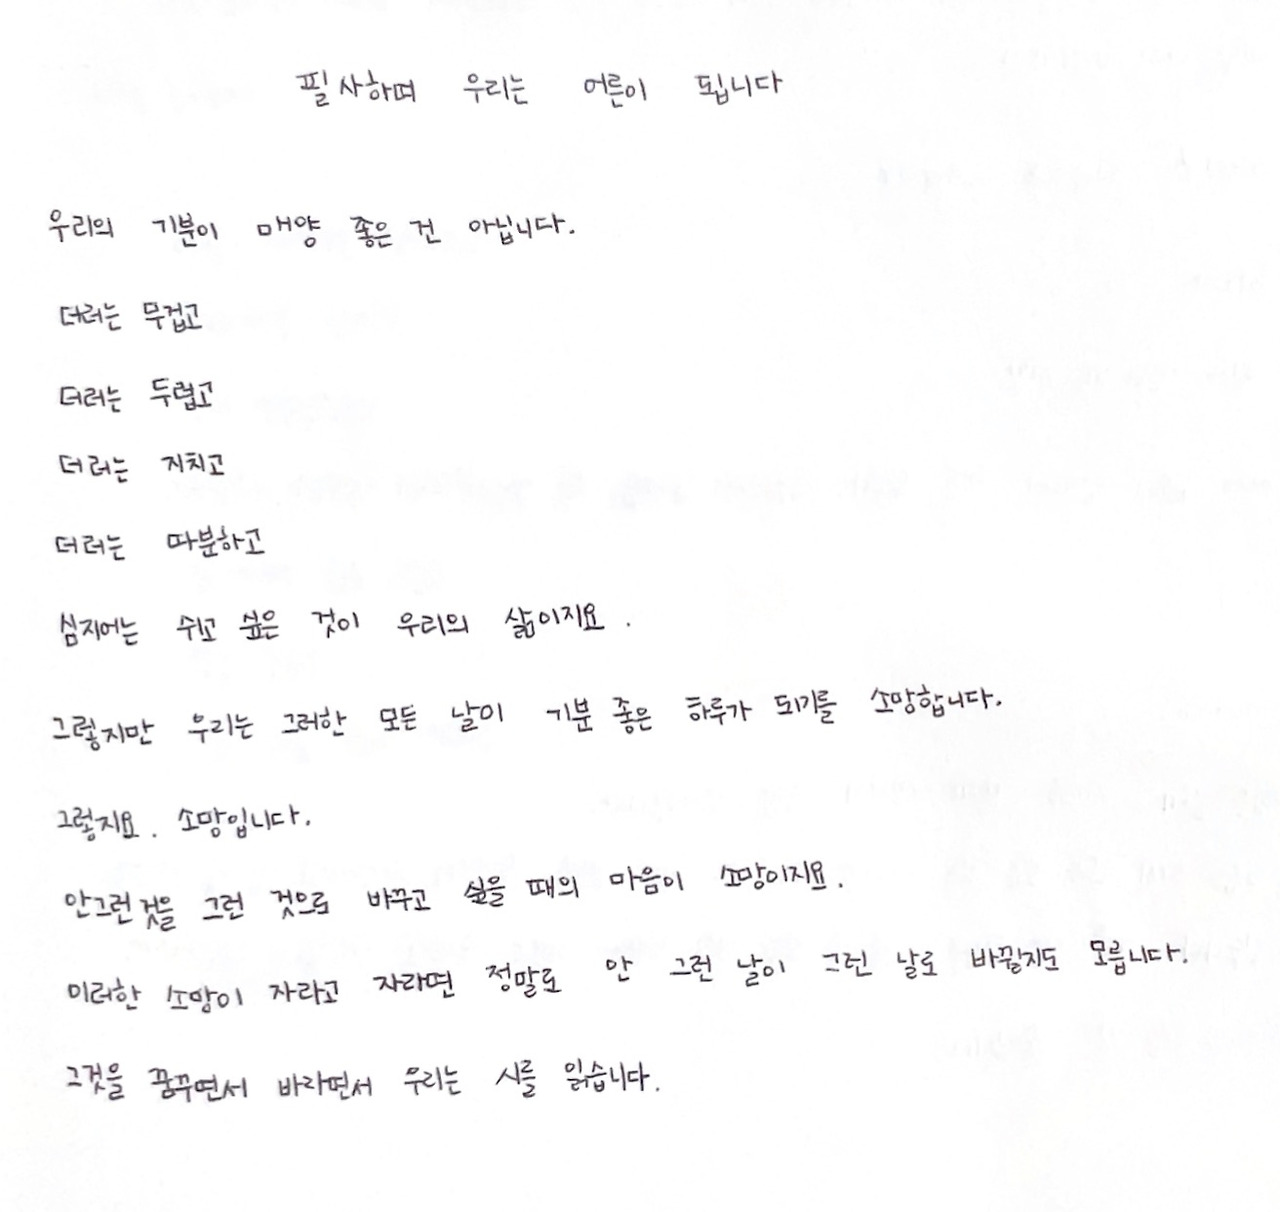 필사하며 우리는 어른이 됩니다
우리의 기분이 매양 좋은 건 아닙니다.
더러는 무겁고
더러는 두렵고
더러는 지치고
더러는 따분하고
심지어는 쉬고 싶은 것이 우리의 삶이지요.
그렇지만 우리는 그러한 모든 날이 기분 좋은 하루가 되기를 소망합니다.
그렇지요. 소망입니다.
안그런 것을 그런 것으로 바꾸고 싶을 때의 마음이 소망이지요.
이러한 소망이 자라고 자라면 정말로 안 그런 날이 그런 날로 바뀔지도 모릅니다.
그것을 꿈꾸면서 바라면서 우리는 시를 읽습니다.